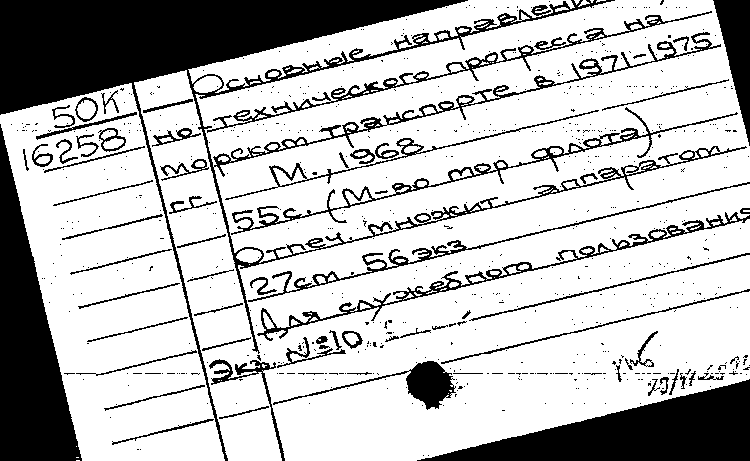 50К
16258
Основные направлени
но-технического прогресса на
морском транспорте в 1971-1975
гг. М., 1968.
55с. (М-во мор. флота).
Отпеч. множит. аппаратом.
27см. 56 экз
Для служебного пользования
Экз. №10